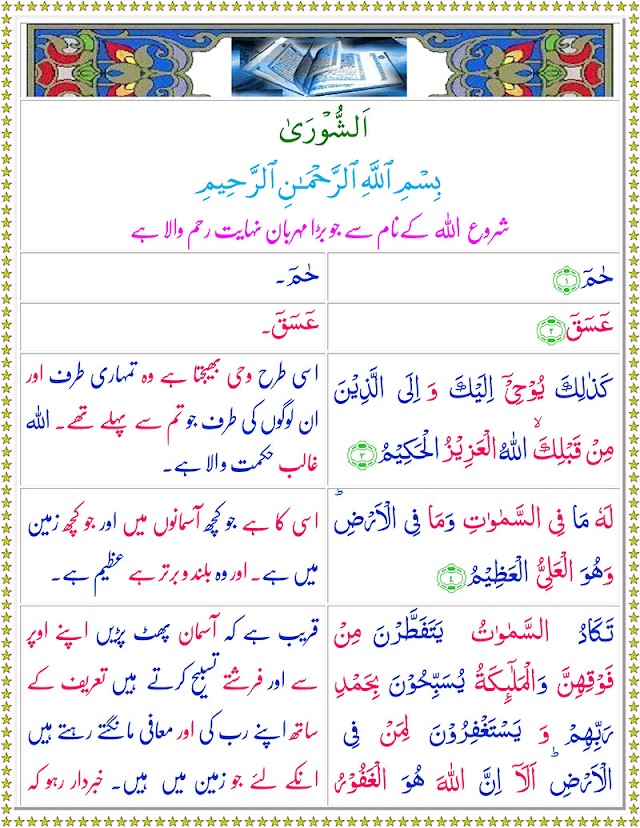 اَلشُّوْرَىٰ
بِسْمِ ٱللَّهِ ٱلرَّحْمَـٰنِ ٱلرَّحِيمِ
شروع اللہ کےنام سے جو بڑا مہربان نہایت رحم والا ہے
حٰمٓ ﴿۱﴾
حٰمٓ۔
عٓسٓقٓ ﴿۲﴾
عٓسٓقٓ۔
كَذٰلِكَ يُوْحِىْۤ اِلَيْكَ وَ اِلَى الَّذِيْنَ
مِنْ قَبْلِكَۙ اللّٰهُ الْعَزِيْزُ الْحَكِيْمُ ﴿۳﴾
اسی طرح وحی بھیجتا ہے وہ تمہاری طرف اور
ان لوگوں کی طرف جو تم سے پہلے تھے۔ اللہ
غالب حکمت والا ہے۔
لَهٗ مَا فِى السَّمٰوٰتِ وَمَا فِى الْاَرْضِؕ
وَهُوَ الْعَلِىُّ الْعَظِيْمُ ﴿۴﴾
اسی کا ہے جو کچھ آسمانوں میں اور جو کچھ زمین
میں ہے۔ اور وہ بلند و برتر ہے عظیم ہے۔
تَكَادُ السَّمٰوٰتُ يَتَفَطَّرْنَ مِنْ
فَوْقِهِنَّ وَالْمَلٰٓٮِٕكَةُ يُسَبِّحُوْنَ بِحَمْدِ
رَبِّهِمْ وَ يَسْتَغْفِرُوْنَ لِمَنْ فِى
الْاَرْضِؕ اَلَاۤ اِنَّ اللّٰهَ هُوَ الْغَفُوْرُ
قریب ہے کہ آسمان پھٹ پڑیں اپنے اوپر
سے اور فرشتے تسبیح کرتے ہیں تعریف کے
ساتھ اپنے رب کی اور معافی مانگتے رہتے ہیں
انکے لئے جو زمین میں ہیں۔ خبردار رہو کہ